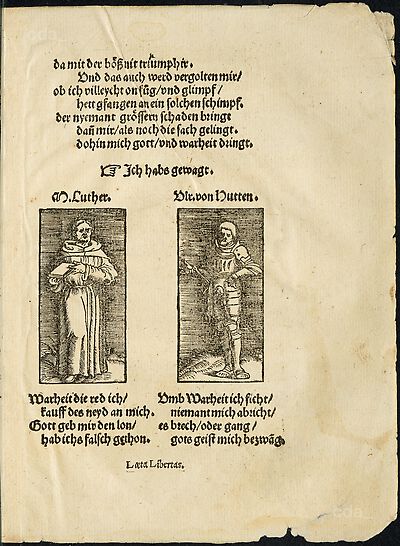 da mit der bößnit triumphir.
Vnd das auch werd vergolten mir/
ob ich villeycht on fůg/vnd glimpf/
hett gfangen an ein solchen schimpf.
der nyemant grössern schaden bringt
dañ mir/als noch die sach gelingt.
dohin mich gott/vnd warheit dringt.
☞ Ich habs gewagt.
M. Luther.
Vlr. von Hutten.
Warheit die red ich/
kauff des neyd an mich.
Gott geb mir den lon/
hab ichs falsch gethon.
Vmb Warheit ich ficht/
niemant mich abricht/
es brech/oder gang/
gots geist mich bezwãg
Læta Libertas.
cda_
cda_